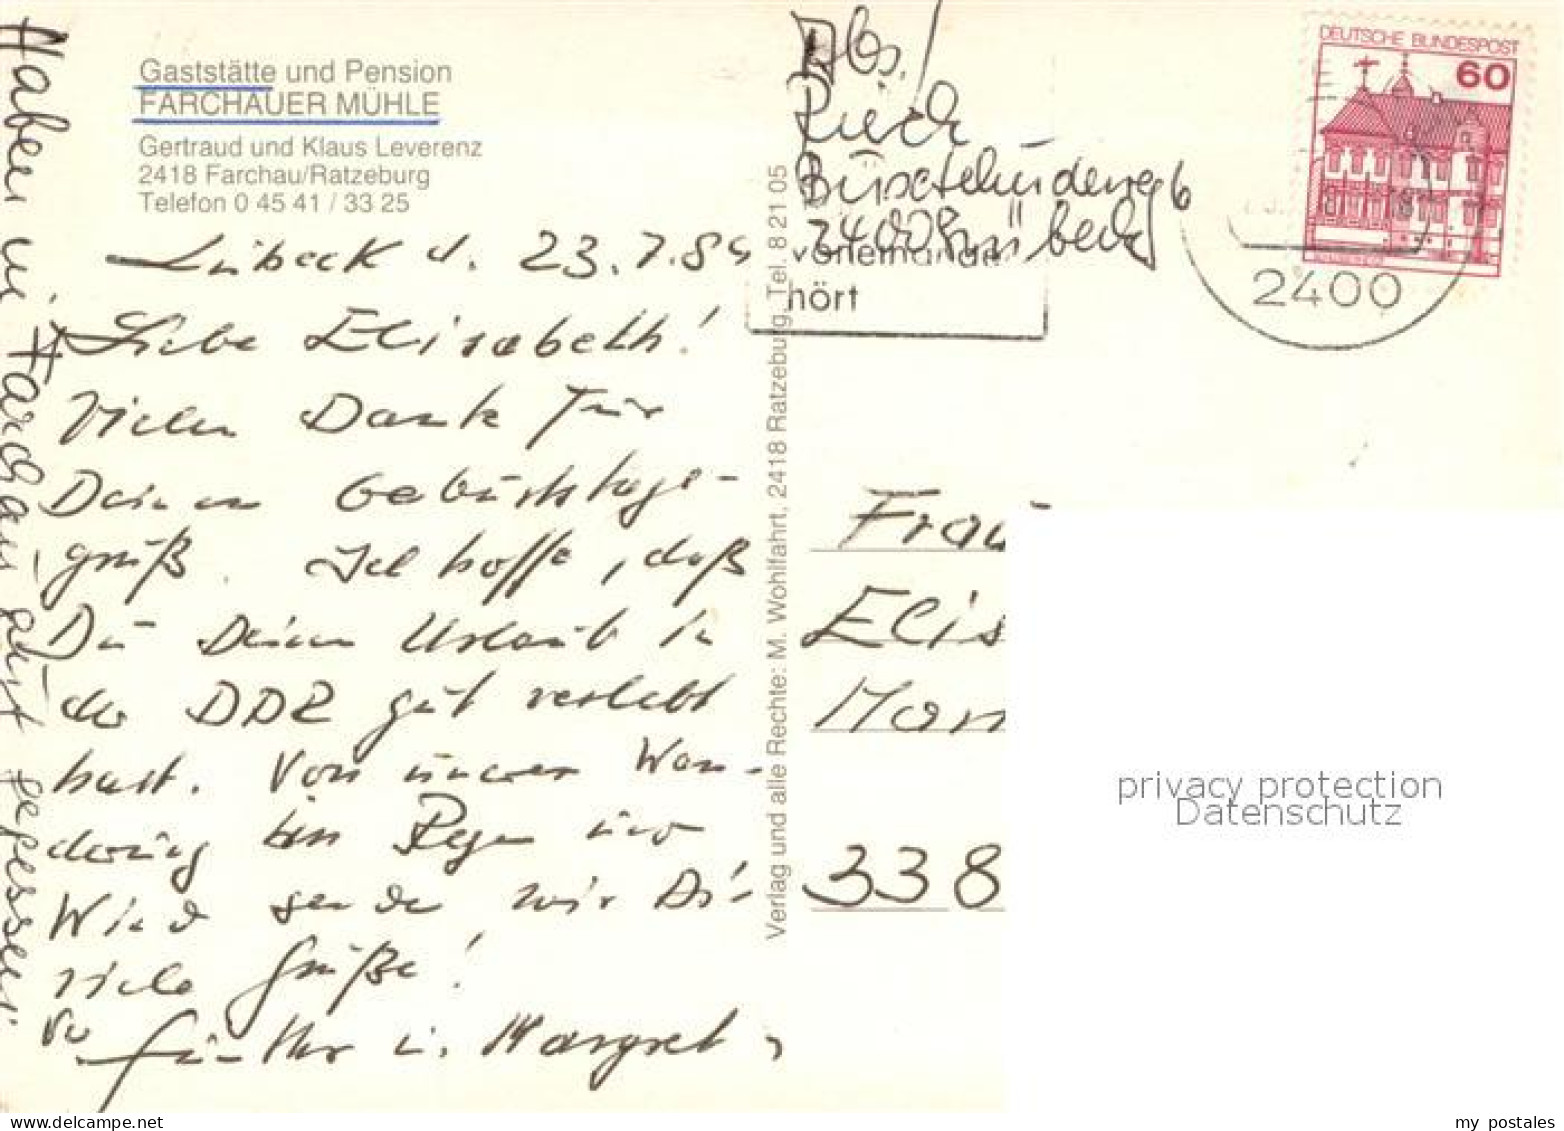 Gaststätte und Pension
FARCHAUER MÜHLE
Gertraud und Klaus Leverenz
2418 Farchau/Ratzeburg
Telefon 0 45 41 / 33 25
Lübeck d. 23.7.84
Liebe Elisabeth!
Vielen Dank für
Deinen Geburtstags-
gruß. Ich hoffe, daß
Du Deinen Urlaub in
der DDR gut verlebt
hast. Von unserer Wan-
derung bei Regen und
Wind senden wir Dir
viele Grüße!
Günther u. Margret
Haben in Farchau gut gegessen.
Verlag und alle Rechte: M. Wohlfahrt, 2418 Ratzeburg, Tel. 8 21 05
Abs.!
2400 Lübeck
hört
DEUTSCHE BUNDESPOST
60
2400
Frau
Elis
338
privacy protection
Datenschutz
www.delcampe.net
my postales